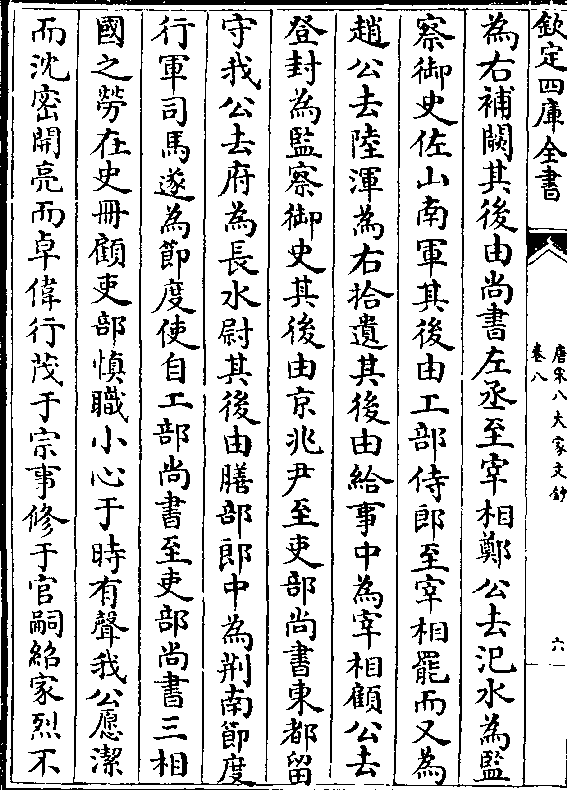 欽定四庫全書
唐宋八大家文鈔
卷八
六
為右補闕其後由尚書左丞至宰相鄭公去汜水為監
察御史佐山南軍其後由工部侍郎至宰相罷而又為
趙公去陸渾為右拾遺其後由給事中為宰相顧公去
登封為監察御史其後由京兆尹至吏部尚書東都留
守我公去府為長水尉其後由膳部郎中為荆南節度
行軍司馬遂為節度使自工部尚書至吏部尚書三相
國之勞在史冊顧吏部慎職小心于時有聲我公愿潔
而沈密開亮而卓偉行茂于宗事修于官嗣紹家烈不